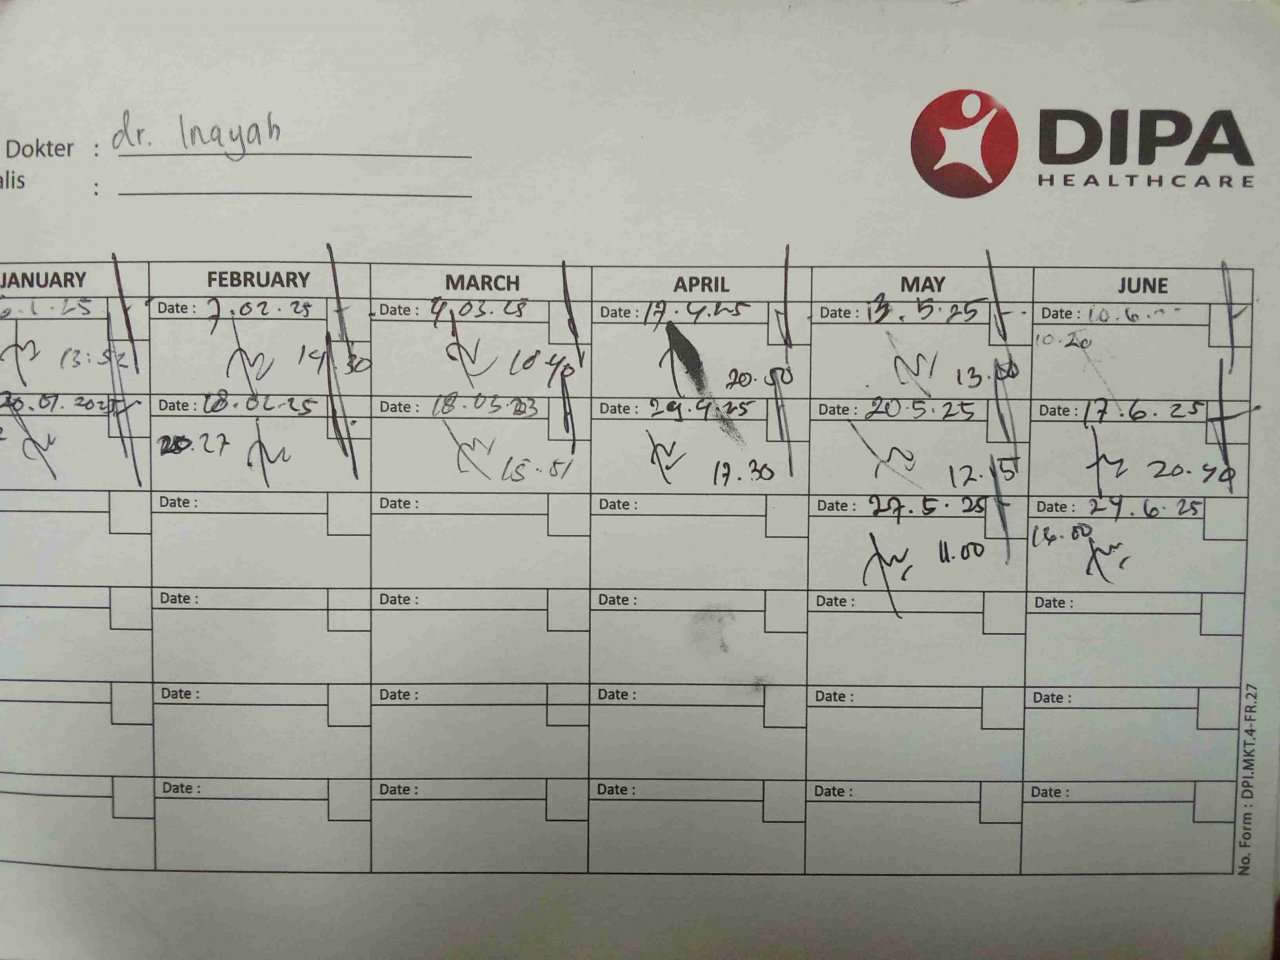 DIPA
HEALTHCARE
Dokter : dr. Inayah
alis :
JANUARY FEBRUARY MARCH APRIL MAY JUNE
.1.25 Date : 7.02.25 Date : 4.03.25 Date : 17.4.25 Date : 13.5.25 Date : 10.6.
10.20
13:52 14.30 10.40 20.50 13.00
20.01.2025 Date : 18.02.25 Date : 18.03. Date : 29.4.25 Date : 20.5.25 Date : 17.6.25
20.27 15.51 17.30 12.15 20.40
Date : Date : Date : Date : 27.5.25 Date : 24.6.25
11.00 14.00
Date : Date : Date : Date : Date :
Date : Date : Date : Date : Date :
Date : Date : Date : Date : Date :
No. Form : DPI.MKT.4-FR.27